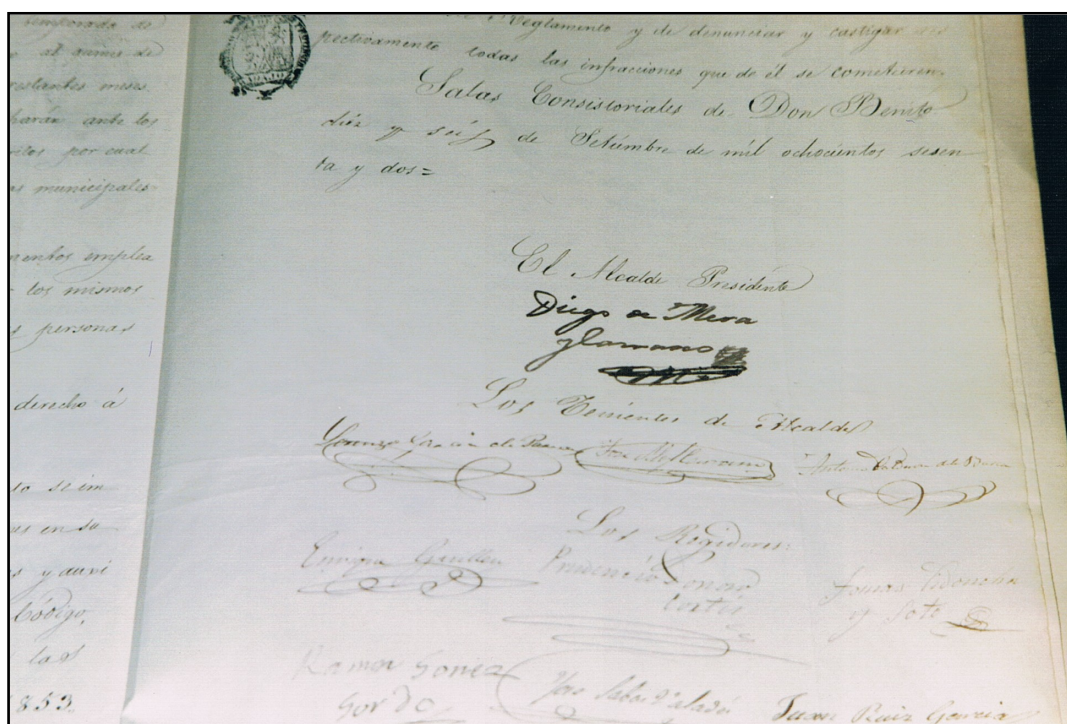 temporada de
al quince de
restantes meses.
harán ante los
por cual
municipales
emplea
los mismos
personas
derecho á
se im
en su
y auxi
Código,
las
1853.
Reglamento y de denunciar y castigar res
pectivamente todas las infracciones que de él se cometieren.
Salas Consistoriales de Don Benito
diez y seis de Setiembre de mil ochocientos sesen
ta y dos=
El Alcalde Presidente
Diego de Mera
Los Tenientes de Alcalde
Lorenzo García de Paredes
Los Regidores:
Enrique Guillen
Prudencio Donoso
Cortés
Tomas Concha
y Soto
Ramon Gomez
Gordo
Juan Ruiz Garcia